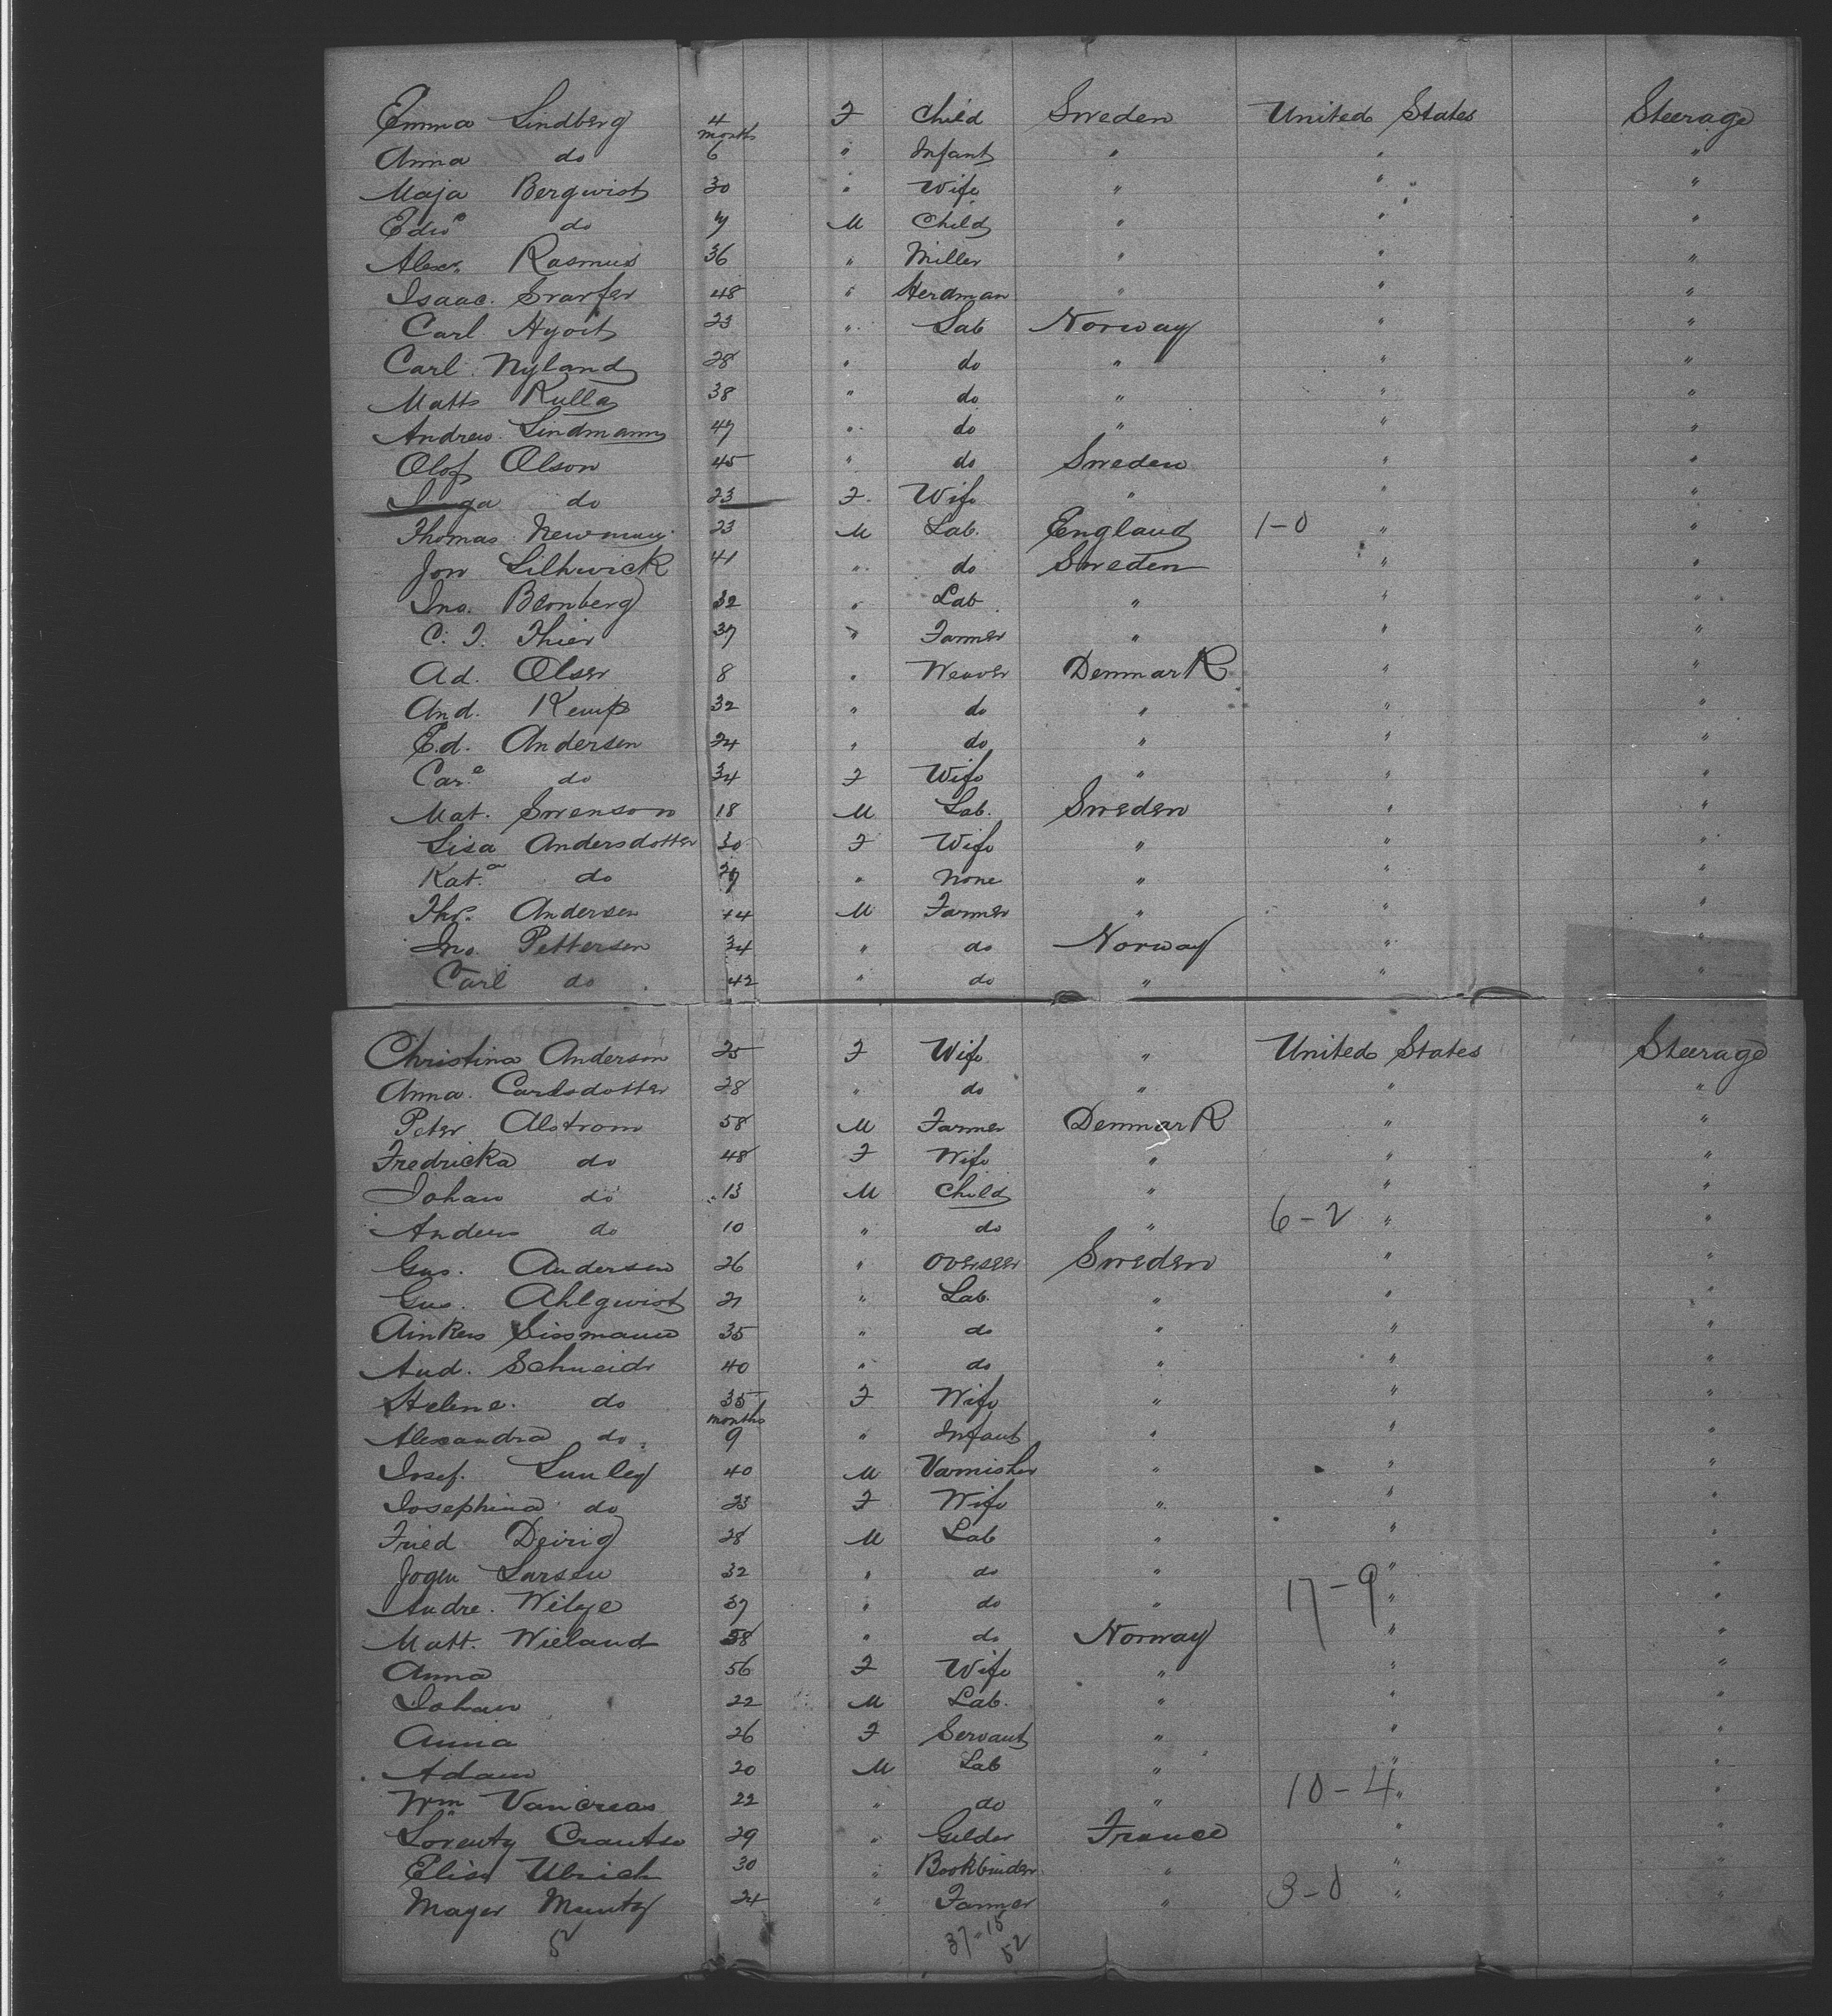 Emma Lindberg 4 F Child Sweden United States Steerage
months
Anna do 6 " Infant " " "
Maja Bergwist 30 " Wife " " "
Edwd do 7 M Child " " "
Alexr. Rasmus 36 " Miller " " "
Isaac. Svarfer 48 " Herdman " " "
Carl Hyort 23 " Lab Norway " "
Carl Nyland 28 " do " " "
Matts Kulla 38 " do " " "
Andrew Lindmann 47 " do " " "
Olof Olson 45 " do Sweden " "
Inga do 23 F. Wife " " "
Thomas Newman 23 M Lab. England 1-0 " "
Jon Lilhwick 41 " do Sweden " "
Jno. Blonberg 32 " Lab " " "
C. F. Thier 37 " Farmer " " "
Ad. Olser 8 " Weaver Denmark " "
And. Kemp 32 " do " " "
Ed. Andersen 24 " do " " "
Care do 34 F Wife " " "
Mat. Swenson 18 M Lab. Sweden " "
Lisa Andersdotter 30 F Wife " " "
Kat.a do 27 " None " " "
Thr. Andersen 44 M Farmer " " "
Jno. Pettersen 34 " do Norway " "
Carl do 42 " do " " "
Christina Anderson 25 F Wife " United States Steerage
Anna. Carlsdotter 28 " do " " "
Peter Alstrom 58 M Farmer Denmark " "
Fredricka do 48 F Wife " " "
Johan do 13 M Child " " "
Anders do 10 " do " 6-2 " "
Gus. Andersen 26 " Overseer Sweden " "
Gus. Ahlgwist 21 " Lab. " " "
Ainkers Sissmann 35 " do " " "
And. Schneidr 40 " do " " "
Helene. do 35 F Wife " " "
months
Alexandra do. 9 " Infant " " "
Josef. Lunley 40 M Varnisher " " "
Josephina do 23 F Wife " " "
Fried Deirig 28 M Lab " " "
Jogen Larsen 32 " do " " "
Andre. Wilge 37 " do " 17-9 " "
Matt. Wieland 58 " do Norway " "
Anna 56 F Wife " " "
Johan 22 M Lab. " " "
Anna 26 F Servant " " "
Adam 20 M Lab " " "
Wm Vancreas 22 " do " 10-4 " "
Lorenty Crautse 29 " Gilder France " "
Elias Ulrich 30 " Bookbinder " " "
Mayer Muntz 24 " Farmer " 3-0 " "
52 37-15
52